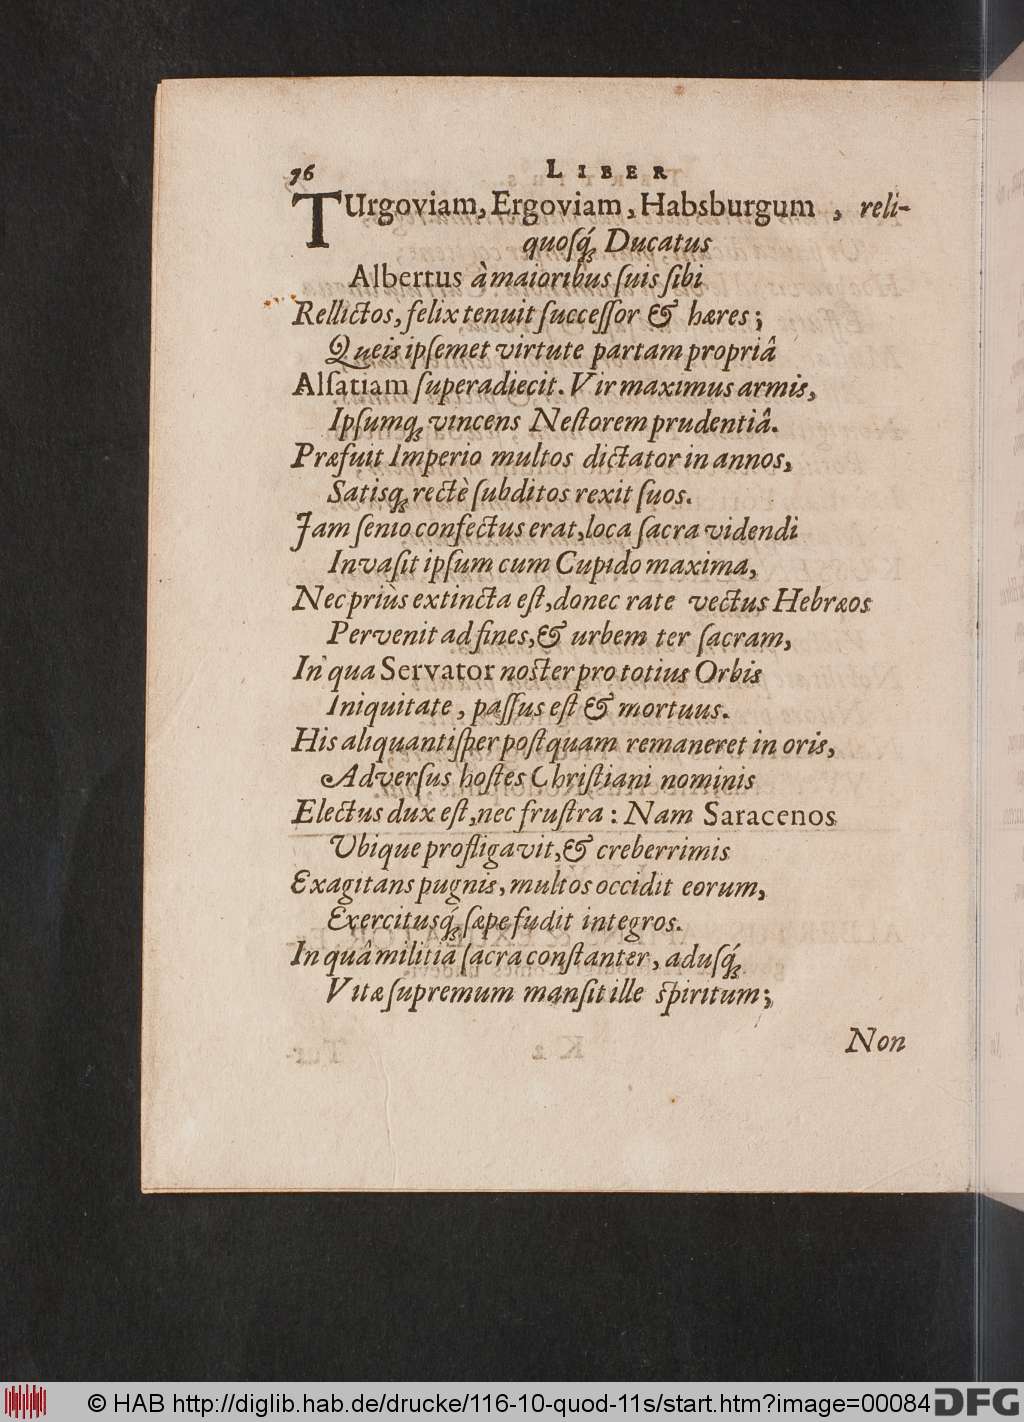 76 LIBER
TUrgoviam, Ergoviam, Habsburgum, reli-
quosq́; Ducatus
Albertus à maioribus suis sibi
Rellictos, felix tenuit successor & hæres;
Queis ipsemet virtute partam propriâ
Alsatiam superadiecit. Vir maximus armis,
Ipsumq; vincens Nestorem prudentiâ.
Præfuit Imperio multos dictator in annos,
Satisq; rectè subditos rexit suos.
Jam senio confectus erat, loca sacra videndi
Invasit ipsum cum Cupido maxima,
Nec priùs extincta est, donec rate vectus Hebræos
Pervenit ad fines, & urbem ter sacram,
In qua Servator noster pro totius Orbis
Iniquitate, passus est & mortuus.
His aliquantisper postquam remaneret in oris,
Adversus hostes Christiani nominis
Electus dux est, nec frustra: Nam Saracenos
Vbique profligavit, & creberrimis
Exagitans pugnis, multos occidit eorum,
Exercitusq́; sæpe fudit integros.
In quâ militiâ sacra constanter, adusq́;
Vitæ supremum mansit ille spiritum;
Non
© HAB http://diglib.hab.de/drucke/116-10-quod-11s/start.htm?image=00084
DFG